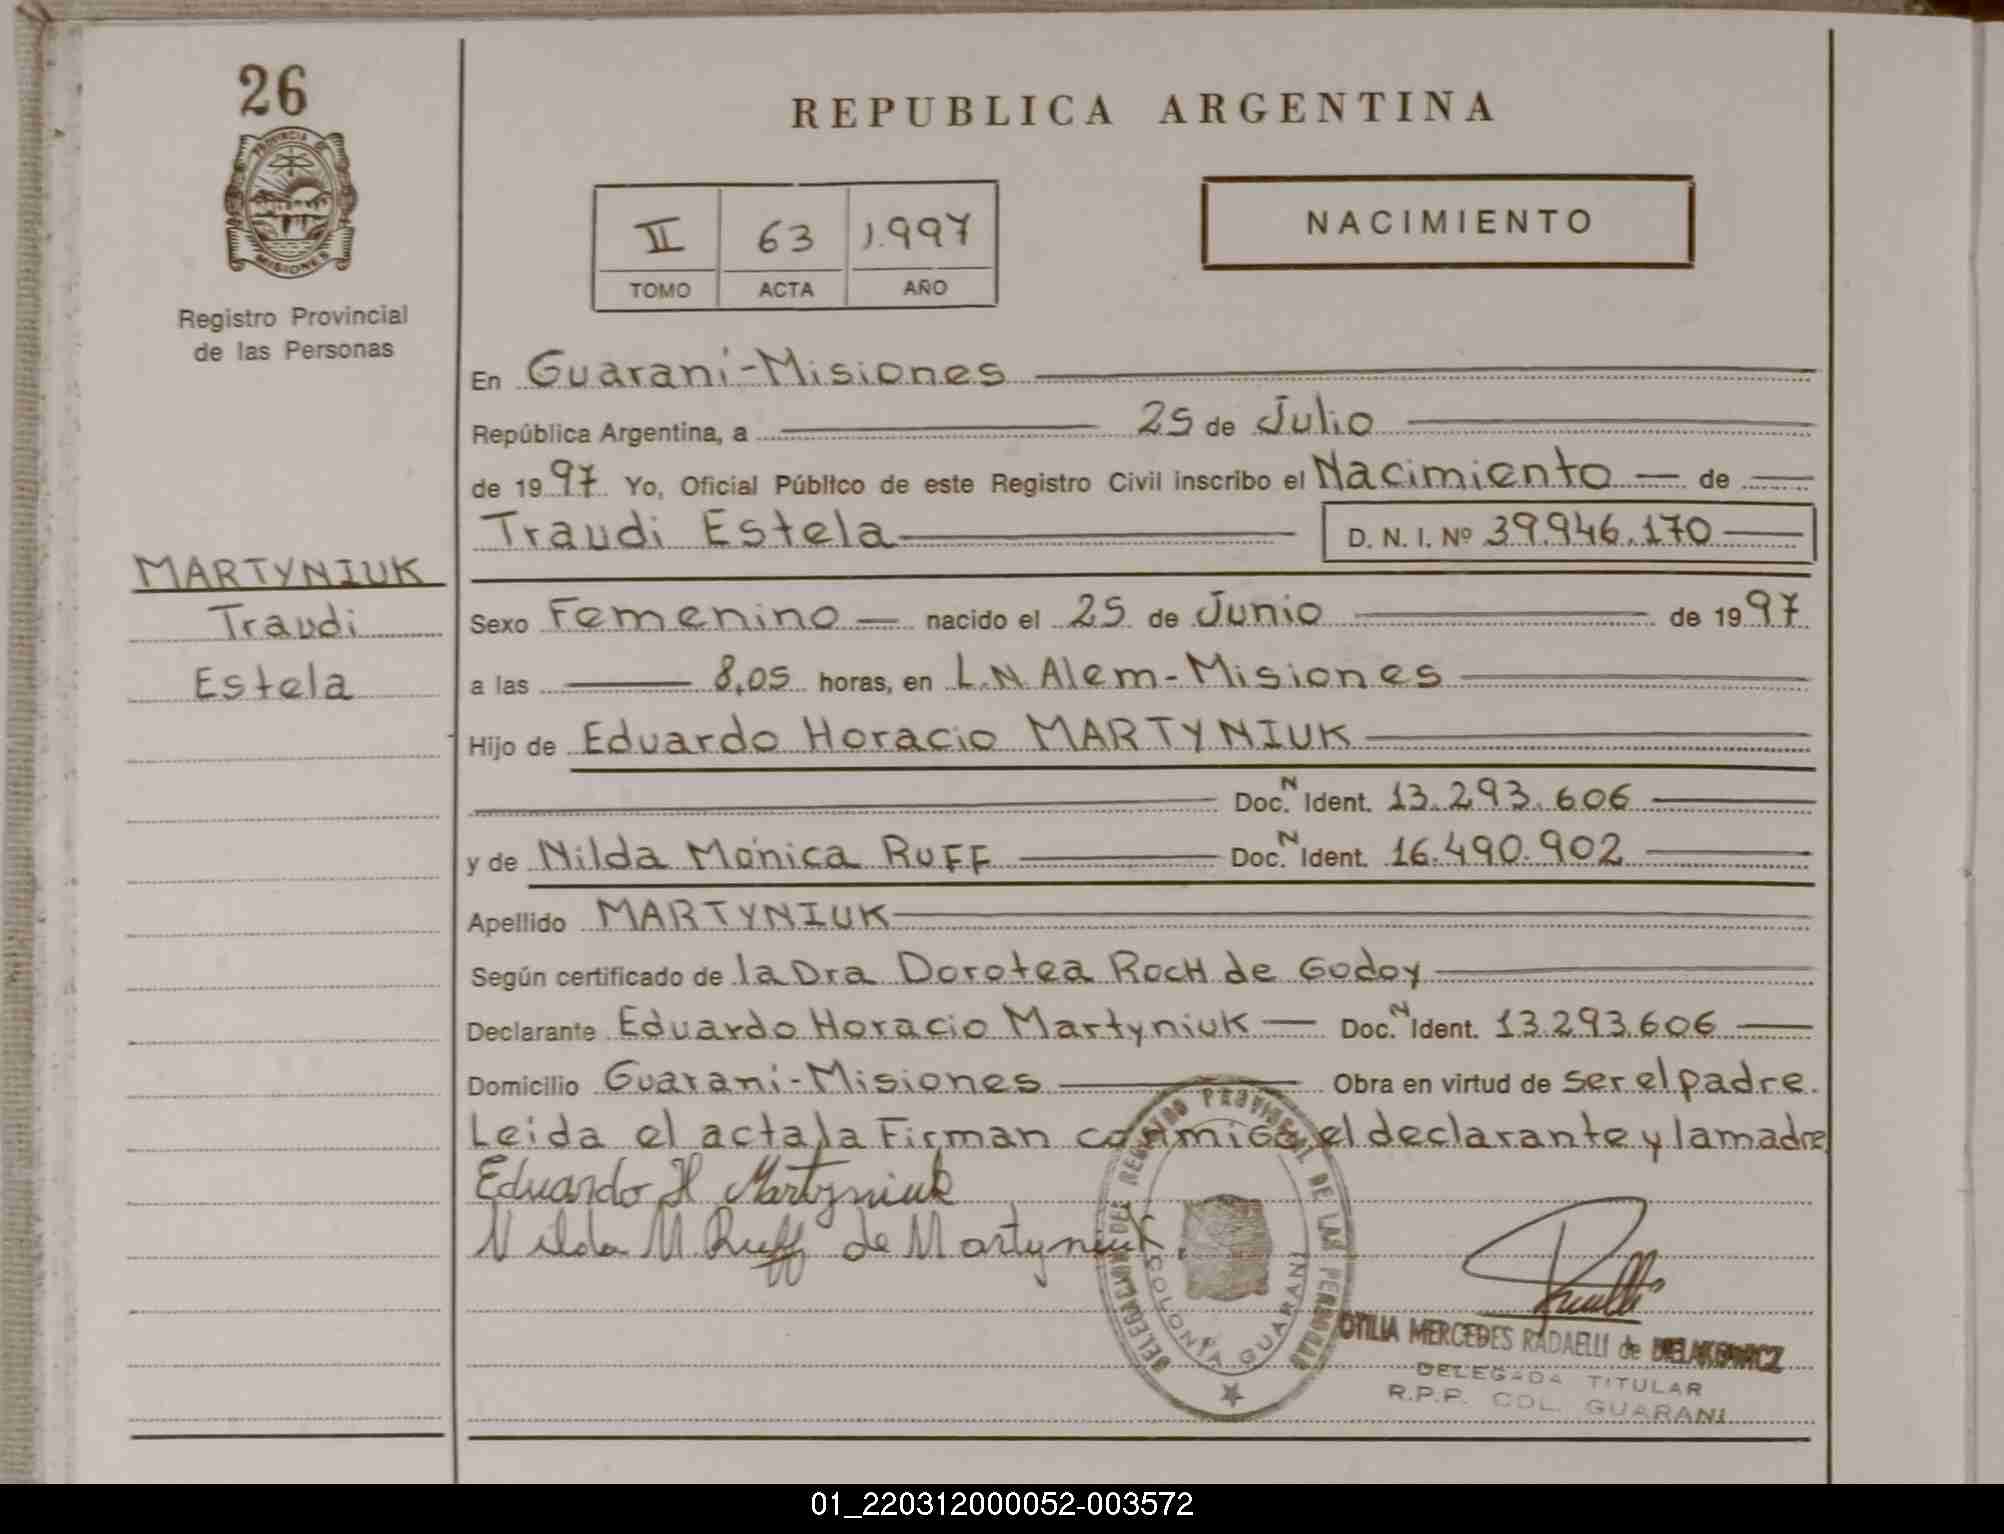 26
PROVINCIA DE
MISIONES
Registro Provincial
de las Personas
MARTYNIUK
Traudi
Estela
REPUBLICA ARGENTINA
II 63 1.997
TOMO ACTA AÑO
NACIMIENTO
En Guaraní-Misiones
República Argentina, a 25 de Julio
de 1997 Yo, Oficial Público de este Registro Civil inscribo el Nacimiento de
Traudi Estela D. N. I. Nº 39.946.170
Sexo Femenino nacido el 25 de Junio de 1997
a las 8,05 horas, en L.N. Alem-Misiones
Hijo de Eduardo Horacio MARTYNIUK
Doc. N Ident. 13.293.606
y de Nilda Mónica RUFF Doc. N Ident. 16.490.902
Apellido MARTYNIUK
Según certificado de la Dra Dorotea RocH de Godoy
Declarante Eduardo Horacio Martyniuk Doc. N Ident. 13.293.606
Domicilio Guaraní-Misiones Obra en virtud de ser el padre.
Leida el acta, la Firman conmigo el declarante y la madre
Eduardo H Martyniuk
Nilda M. Ruff de Martyniuk.
DELEGACION DEL REGISTRO PROVINCIAL DE LAS PERSONAS
COLONIA GUARANI
OTILIA MERCEDES RADAELLI de
DELEGADA TITULAR
R.P.P. COL. GUARANI
01_220312000052-003572